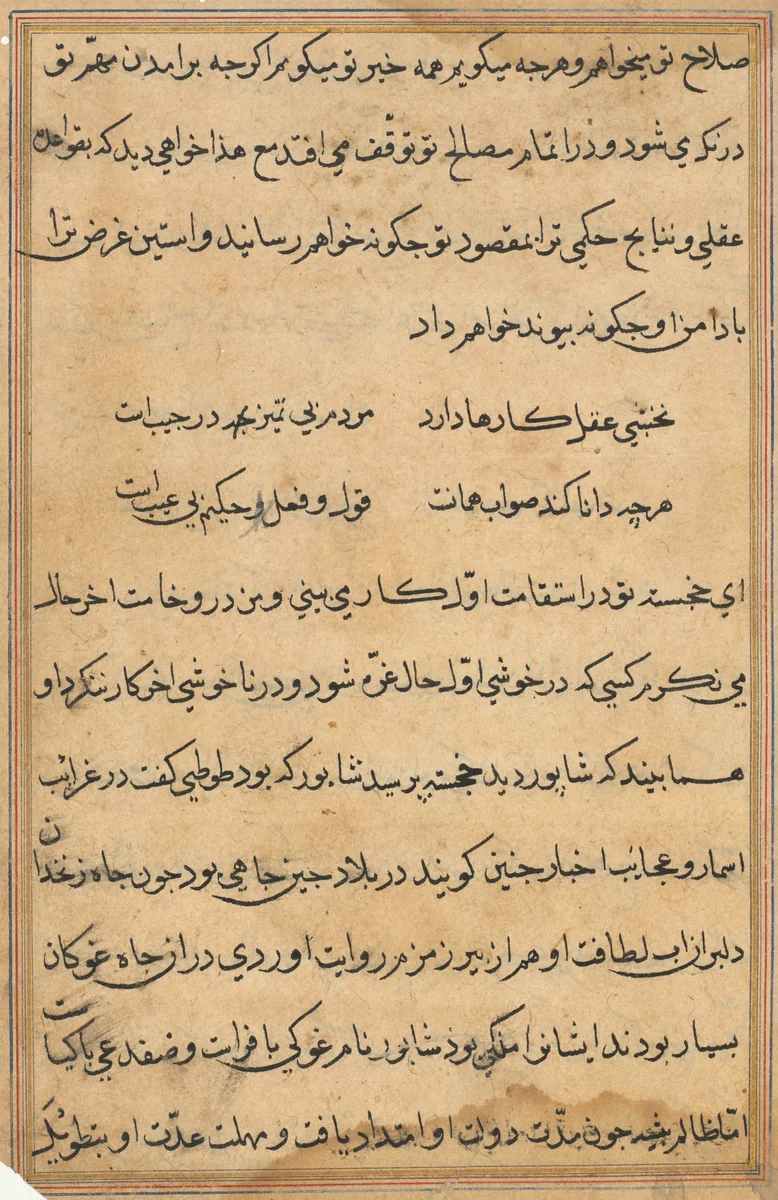 صلاح تو میخواهم و هرجه میکویم همه خیر تو میکویم اکرجه برامدن مهمّ تو
درنک می شود و در اتمام مصالح تو توقّف می افتد مع هذا خواهی دید که بقواعد
عقلی و نتایج حکمی ترا بمقصود تو جکونه خواهم رسانید و استین غرض ترا
با دامن او جکونه بیوند خواهم داد
نخشبی عقل کارها دارد مردم بی تمیز در جیب است
هرچه دانا کند صواب همانست قول و فعل حکیم بی عیب است
ای خجسته تو در استقامت اوّل کار می بینی و من در وخامت اخر حال
می نکرم کسی که در خوشی اوّل حال غرّه شود و در ناخوشی اخر کار ننکرد او
همان بیند که شاپور دید خجسته پرسید شابور که بود طوطی کفت در غرائب
اسمار و عجایب اخبار جنین کویند در بلاد جین جاهی بود جون جاه زنخدان
دلبران اب لطافت او هم از بیر زمزم روایت اوردی در ان جاه غوکان
بسیار بودند ایشانرا ملکی بود شابور نام غوکی با فراست و ضفدعی با کیاست
امّا ظالم بیشه جون مدّت دولت او امتداد یافت و مهلت عدّت او بتطویل